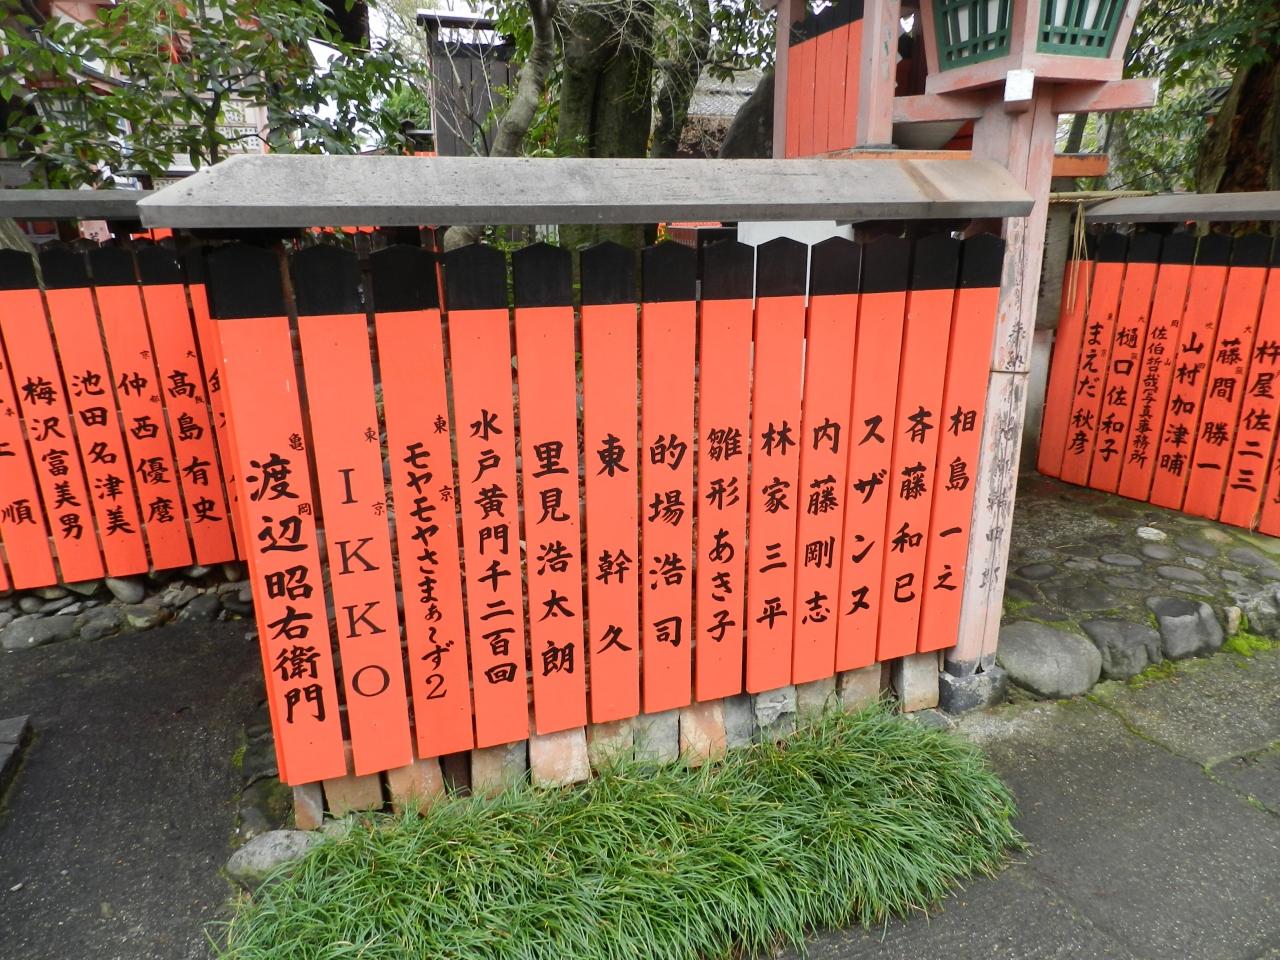 相島一之
斉藤和巳
スザンヌ
内藤剛志
林家三平
雛形あき子
的場浩司
東幹久
里見浩太朗
水戸黄門千二百回
東京
モヤモヤさまぁ〜ず2
東京
IKKO
亀岡
渡辺昭右衛門
大阪
高島有史
京都
仲西優麿
池田名津美
梅沢富美男
杵屋佐二三
大阪
藤間勝一
山村加津晡
岡山
佐伯哲哉写真事務所
大阪
樋口佐和子
東京
まえだ秋彦